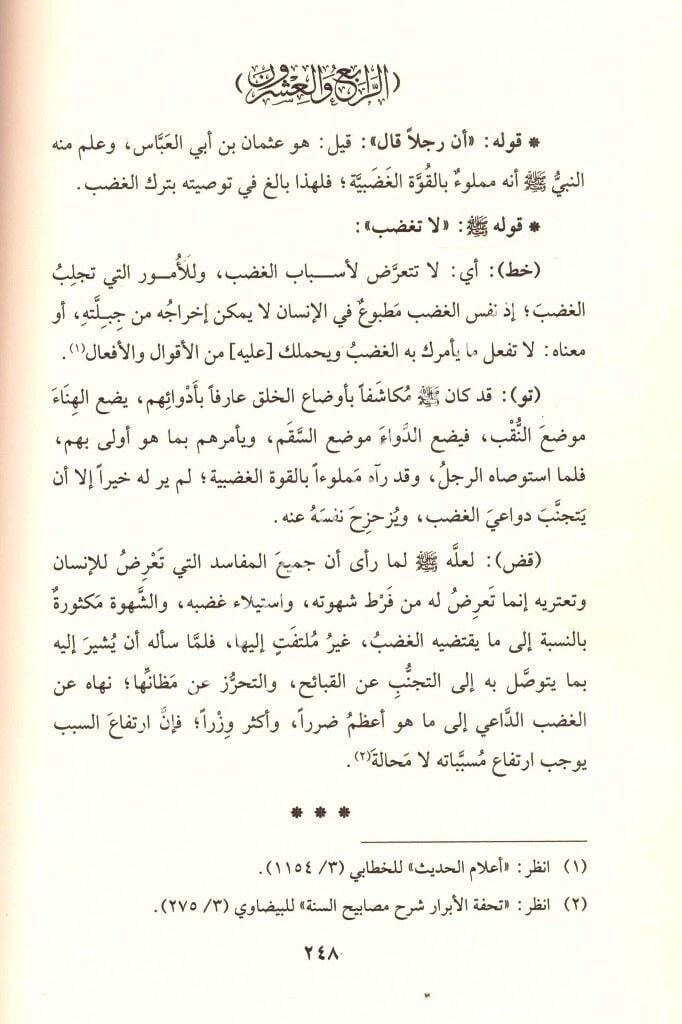 (الرَّابع والعشرون)
* قوله: «أن رجلاً قال»: قيل: هو عثمان بن أبي العَبَّاس، وعلم منه
النبيُّ ﷺ أنه مملوءٌ بالقُوَّة الغَضَبيَّة؛ فلهذا بالغ في توصيته بترك الغضب.
* قوله ﷺ: «لا تغضب»:
(خط): أي: لا تتعرَّض لأسباب الغضب، وللأُمور التي تجلِبُ
الغضبَ؛ إذ نفس الغضب مَطبوعٌ في الإنسان لا يمكن إخراجُه من جِبِلَّتهِ، أو
معناه: لا تفعل ما يأمرك به الغضبُ ويحملك [عليه] من الأقوال والأفعال(١).
(تو): قد كان ﷺ مُكاشَفاً بأوضاع الخلق عارفاً بأَدْوائِهم، يضع الهِنَاءَ
موضعَ النُّقْب، فيضع الدَّواءَ موضع السَّقَم، ويأمرهم بما هو أولى بهم،
فلما استوصاه الرجلُ، وقد رآه مَملوءاً بالقوة الغضبية؛ لم ير له خيراً إلا أن
يَتجنَّبَ دواعيَ الغضب، ويُزحزِحَ نفسَهُ عنه.
(قض): لعلَّه ﷺ لما رأى أن جميعَ المفاسد التي تَعْرِضُ للإنسان
وتعتريه إنما تَعرِضُ له من فَرْط شهوته، واستيلاء غضبه، والشَّهوة مَكثورةٌ
بالنسبة إلى ما يقتضيه الغضبُ، غيرُ مُلتفَتٍ إليها، فلمَّا سأله أن يُشيرَ إليه
بما يتوصَّل به إلى التجنُّبِ عن القبائح، والتحرُّز عن مَظانِّها؛ نهاه عن
الغضب الدَّاعي إلى ما هو أعظمُ ضرراً، وأكثر وِزْراً؛ فإنَّ ارتفاعَ السبب
يوجب ارتفاع مُسبَّباته لا مَحالةَ(٢).
* * *
(١) انظر: «أعلام الحديث» للخطابي (٣/ ١١٥٤).
(٢) انظر: «تحفة الأبرار شرح مصابيح السنة» للبيضاوي (٣/ ٢٧٥).
٢٤٨